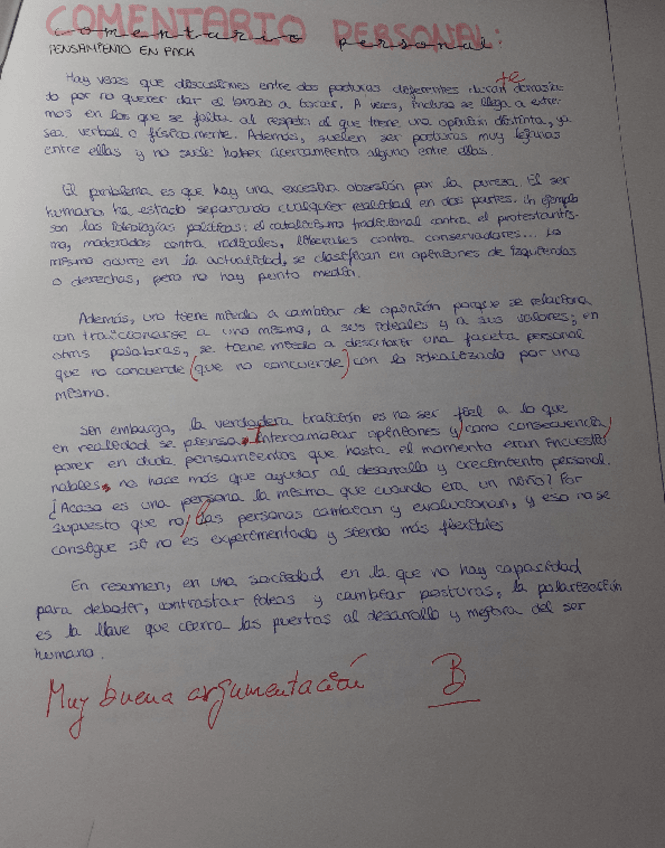 COMENTARIO PERSONAL:
comentario personal:
PENSAMIENTO EN PACK
Hay veces que discusiones entre dos posturas diferentes duran demasia
te
do por no querer dar el brazo a torcer. A veces, incluso se llega a extre-
mos en los que se falta al respeto al que tiene una opinión distinta, ya
sea verbal o físicamente. Además, suelen ser posturas muy lejanas
entre ellas y no suele haber acercamiento alguno entre ellas.
El problema es que hay una excesiva obsesión por la pureza. El ser
humano ha estado separando cualquier realidad en dos partes. Un ejemplo
son las ideologías políticas: el catolicismo tradicional contra el protestantis-
mo, moderados contra radicales, liberales contra conservadores... Lo
mismo ocurre en la actualidad, se clasifican en opiniones de izquierdas
o derechas, pero no hay punto medio.
Además, uno tiene miedo a cambiar de opinión porque se relaciona
con traicionarse a uno mismo, a sus ideales y a sus valores; en
otras palabras, se tiene miedo a descubrir una faceta personal
que no concuerde (que no concuerde) con lo idealizado por uno
mismo.
Sin embargo, la verdadera traición es no ser fiel a lo que
en realidad se piensa. Intercambiar opiniones y, como consecuencia,
poner en duda pensamientos que hasta el momento eran incuestio
nables, no hace más que ayudar al desarrollo y crecimiento personal.
¿Acaso es una persona la misma que cuando era un niño? Por
supuesto que no, las personas cambian y evolucionan, y eso no se
consigue si no es experimentado y siendo más flexibles
En resumen, en una sociedad en la que no hay capacidad
para debatir, contrastar ideas y cambiar posturas, la polarización
es la llave que cierra las puertas al desarrollo y mejora del ser
humano.
Muy buena argumentación B